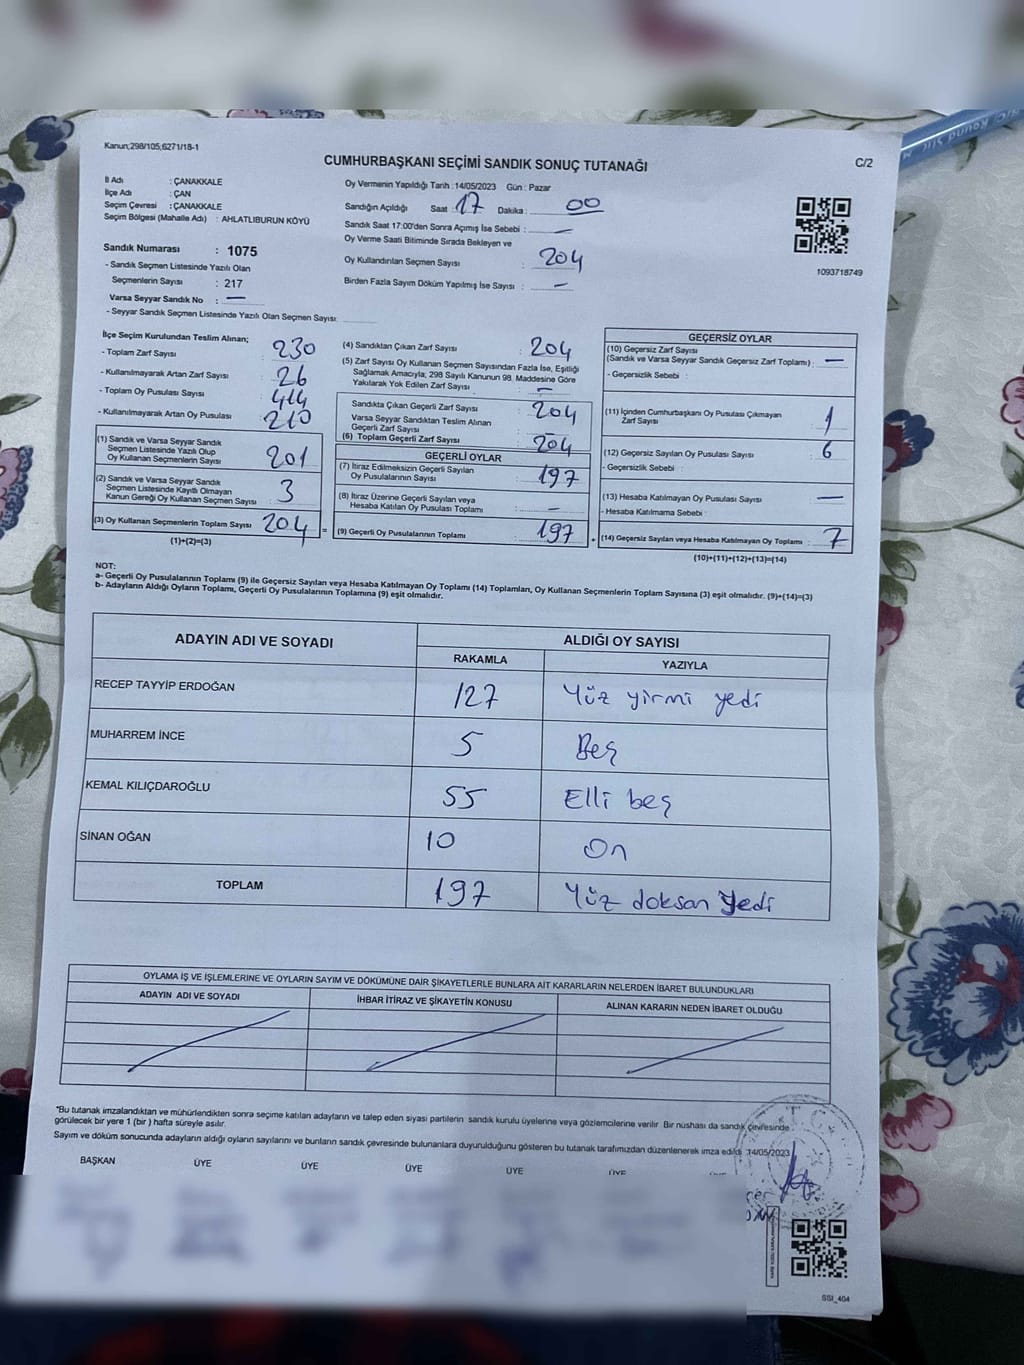 Kanun;298/105,6271/18-1
CUMHURBAŞKANI SEÇİMİ SANDIK SONUÇ TUTANAĞI
C/2
İl Adı : ÇANAKKALE
İlçe Adı : ÇAN
Seçim Çevresi : ÇANAKKALE
Seçim Bölgesi (Mahalle Adı) : AHLATLIBURUN KÖYÜ
Sandık Numarası : 1075
- Sandık Seçmen Listesinde Yazılı Olan
Seçmenlerin Sayısı : 217
Varsa Seyyar Sandık No : —
- Seyyar Sandık Seçmen Listesinde Yazılı Olan Seçmen Sayısı:
Oy Vermenin Yapıldığı Tarih :14/05/2023 Gün : Pazar
Sandığın Açıldığı Saat : 17 Dakika : 00
Sandık Saat 17:00'den Sonra Açımış İse Sebebi : —
Oy Verme Saati Bitiminde Sırada Bekleyen ve
Oy Kullandırılan Seçmen Sayısı : 204
Birden Fazla Sayım Döküm Yapılmış İse Sayısı : —
1093718749
İlçe Seçim Kurulundan Teslim Alınan;
- Toplam Zarf Sayısı : 230
- Kullanılmayarak Artan Zarf Sayısı : 26
- Toplam Oy Pusulası Sayısı : 414
- Kullanılmayarak Artan Oy Pusulası : 210
(1) Sandık ve Varsa Seyyar Sandık
Seçmen Listesinde Yazılı Olup
Oy Kullanan Seçmenlerin Sayısı : 201
(2) Sandık ve Varsa Seyyar Sandık
Seçmen Listesinde Kayıtlı Olmayan
Kanun Gereği Oy Kullanan Seçmen Sayısı : 3
(3) Oy Kullanan Seçmenlerin Toplam Sayısı : 204 =
(1)+(2)=(3)
(4) Sandıktan Çıkan Zarf Sayısı : 204
(5) Zarf Sayısı Oy Kullanan Seçmen Sayısından Fazla İse, Eşitliği
Sağlamak Amacıyla, 298 Sayılı Kanunun 98. Maddesine Göre
Yakılarak Yok Edilen Zarf Sayısı : —
Sandıkta Çıkan Geçerli Zarf Sayısı : 204
Varsa Seyyar Sandıktan Teslim Alınan
Geçerli Zarf Sayısı
(6) Toplam Geçerli Zarf Sayısı : 204
GEÇERLİ OYLAR
(7) İtiraz Edilmeksizin Geçerli Sayılan
Oy Pusulalarının Sayısı : 197
(8) İtiraz Üzerine Geçerli Sayılan veya
Hesaba Katılan Oy Pusulası Toplamı : —
(9) Geçerli Oy Pusulalarının Toplamı : 197 +
GEÇERSİZ OYLAR
(10) Geçersiz Zarf Sayısı
(Sandık ve Varsa Seyyar Sandık Geçersiz Zarf Toplamı) : —
- Geçersizlik Sebebi :
(11) İçinden Cumhurbaşkanı Oy Pusulası Çıkmayan
Zarf Sayısı : 1
(12) Geçersiz Sayılan Oy Pusulası Sayısı : 6
- Geçersizlik Sebebi :
(13) Hesaba Katılmayan Oy Pusulası Sayısı : —
- Hesaba Katılmama Sebebi :
(14) Geçersiz Sayılan veya Hesaba Katılmayan Oy Toplamı : 7
(10)+(11)+(12)+(13)=(14)
NOT:
a- Geçerli Oy Pusulalarının Toplamı (9) ile Geçersiz Sayılan veya Hesaba Katılmayan Oy Toplamı (14) Toplamları, Oy Kullanan Seçmenlerin Toplam Sayısına (3) eşit olmalıdır. (9)+(14)=(3)
b- Adayların Aldığı Oyların Toplamı, Geçerli Oy Pusulalarının Toplamına (9) eşit olmalıdır.
ADAYIN ADI VE SOYADI ALDIĞI OY SAYISI
RAKAMLA YAZIYLA
RECEP TAYYİP ERDOĞAN 127 Yüz yirmi yedi
MUHARREM İNCE 5 Beş
KEMAL KILIÇDAROĞLU 55 Elli beş
SİNAN OĞAN 10 On
TOPLAM 197 Yüz doksan yedi
OYLAMA İŞ VE İŞLEMLERİNE VE OYLARIN SAYIM VE DÖKÜMÜNE DAİR ŞİKAYETLERLE BUNLARA AİT KARARLARIN NELERDEN İBARET BULUNDUKLARI
ADAYIN ADI VE SOYADI İHBAR İTİRAZ VE ŞİKAYETİN KONUSU ALINAN KARARIN NEDEN İBARET OLDUĞU
"Bu tutanak imzalandıktan ve mühürlendikten sonra seçime katılan adayların ve talep eden siyasi partilerin sandık kurulu üyelerine veya gözlemcilerine verilir Bir nüshası da sandık çevresinde
görülecek bir yere 1 (bir ) hafta süreyle asılır.
Sayım ve döküm sonucunda adayların aldığı oyların sayılarını ve bunların sandık çevresinde bulunanlara duyurulduğunu gösteren bu tutanak tarafımızdan düzenlenerek imza edildi :14/05/2023
BAŞKAN ÜYE ÜYE ÜYE ÜYE ÜYE
SSI_404